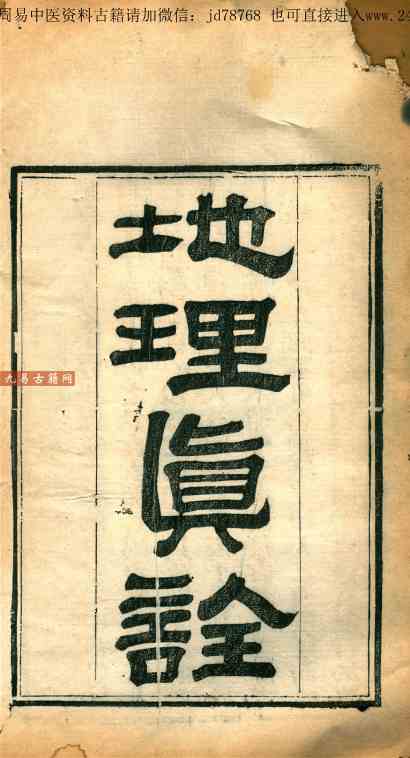 周易中医资料古籍请加微信：jd78768 也可直接进入www.2
地理眞詮
九易古籍网